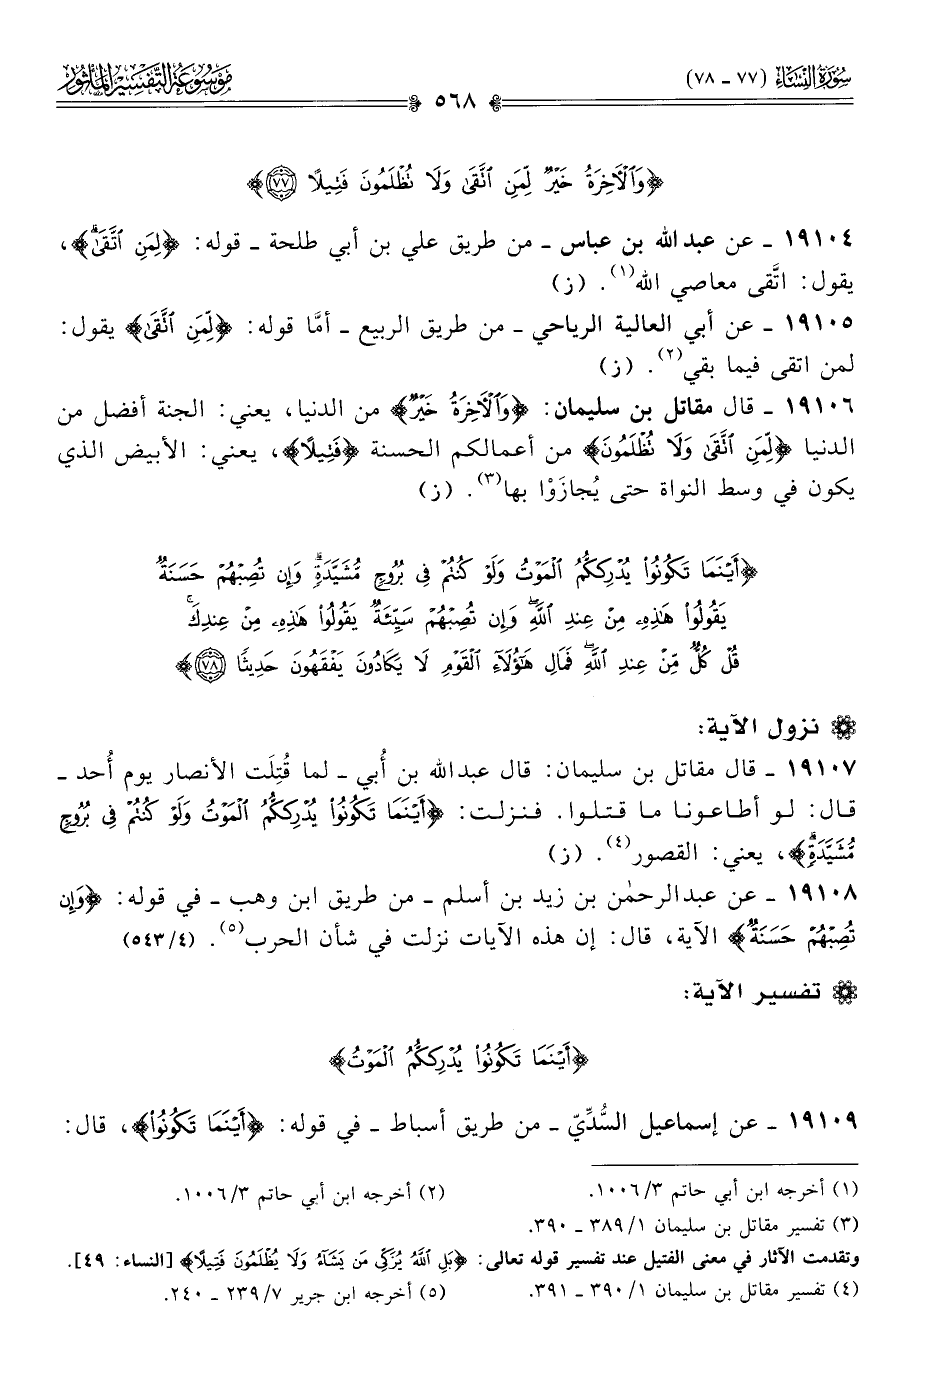 سُورَةُ النِّسَاء (٧٧ - ٧٨)
٥٦٨
مَوْسُوعَةُ التَّفْسِيرِ المَأْثُور
﴿وَٱلْأٓخِرَةُ خَيْرٌ لِّمَنِ ٱتَّقَىٰ وَلَا تُظْلَمُونَ فَتِيلًا ٧٧﴾
١٩١٠٤ - عن عبد الله بن عباس - من طريق علي بن أبي طلحة - قوله: ﴿لِمَنِ ٱتَّقَىٰۗ﴾،
يقول: اتَّقى معاصي الله(١). (ز)
١٩١٠٥ - عن أبي العالية الرياحي - من طريق الربيع - أمَّا قوله: ﴿لِّمَنِ ٱتَّقَىٰ﴾ يقول:
لمن اتقى فيما بقي(٢). (ز)
١٩١٠٦ - قال مقاتل بن سليمان: ﴿وَٱلْأٓخِرَةُ خَيْرٌ﴾ من الدنيا، يعني: الجنة أفضل من
الدنيا ﴿لِّمَنِ ٱتَّقَىٰ وَلَا تُظْلَمُونَ﴾ من أعمالكم الحسنة ﴿فَتِيلًا﴾، يعني: الأبيض الذي
يكون في وسط النواة حتى يُجازَوْا بها(٣). (ز)
﴿أَيْنَمَا تَكُونُوا۟ يُدْرِككُّمُ ٱلْمَوْتُ وَلَوْ كُنتُمْ فِى بُرُوجٍ مُّشَيَّدَةٍۗ وَإِن تُصِبْهُمْ حَسَنَةٌ
يَقُولُوا۟ هَـٰذِهِۦ مِنْ عِندِ ٱللَّهِۖ وَإِن تُصِبْهُمْ سَيِّئَةٌ يَقُولُوا۟ هَـٰذِهِۦ مِنْ عِندِكَۚ
قُلْ كُلٌّ مِّنْ عِندِ ٱللَّهِۖ فَمَالِ هَـٰٓؤُلَآءِ ٱلْقَوْمِ لَا يَكَادُونَ يَفْقَهُونَ حَدِيثًا ٧٨﴾
نزول الآية:
١٩١٠٧ - قال مقاتل بن سليمان: قال عبد الله بن أُبي - لما قُتِلَت الأنصار يوم أُحد -
قال: لو أطاعونا ما قتلوا. فنزلت: ﴿أَيْنَمَا تَكُونُوا۟ يُدْرِككُّمُ ٱلْمَوْتُ وَلَوْ كُنتُمْ فِى بُرُوجٍ
مُّشَيَّدَةٍۗ﴾، يعني: القصور(٤). (ز)
١٩١٠٨ - عن عبد الرحمٰن بن زيد بن أسلم - من طريق ابن وهب - في قوله: ﴿وَإِن
تُصِبْهُمْ حَسَنَةٌ﴾ الآية، قال: إن هذه الآيات نزلت في شأن الحرب(٥). (٥٤٣/٤)
تفسير الآية:
﴿أَيْنَمَا تَكُونُوا۟ يُدْرِككُّمُ ٱلْمَوْتُ﴾
١٩١٠٩ - عن إسماعيل السُّدِّيّ - من طريق أسباط - في قوله: ﴿أَيْنَمَا تَكُونُوا۟﴾، قال:
(١) أخرجه ابن أبي حاتم ١٠٠٦/٣.
(٢) أخرجه ابن أبي حاتم ١٠٠٦/٣.
(٣) تفسير مقاتل بن سليمان ٣٨٩/١ - ٣٩٠.
وتقدمت الآثار في معنى الفتيل عند تفسير قوله تعالى: ﴿بَلِ ٱللَّهُ يُزَكِّى مَن يَشَآءُ وَلَا يُظْلَمُونَ فَتِيلًا﴾ [النساء: ٤٩].
(٤) تفسير مقاتل بن سليمان ٣٩٠/١ - ٣٩١.
(٥) أخرجه ابن جرير ٢٣٩/٧ - ٢٤٠.